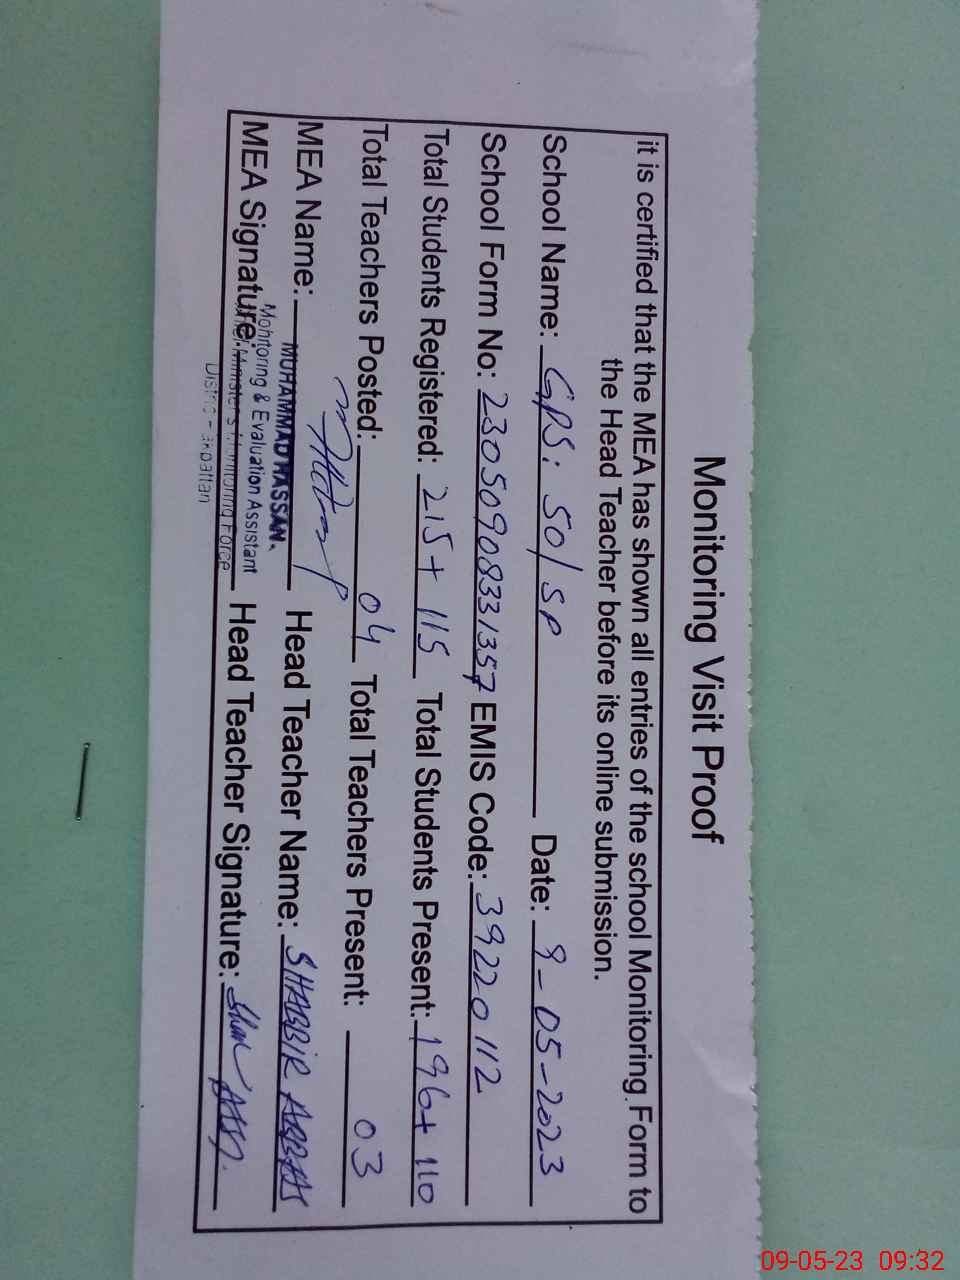 Monitoring Visit Proof
it is certified that the MEA has shown all entries of the school Monitoring Form to
the Head Teacher before its online submission.
School Name: GPS: 50/SP Date: 9-05-2023
School Form No: 23050908331357 EMIS Code: 39220112
Total Students Registered: 215+115 Total Students Present: 196+110
Total Teachers Posted: 04 Total Teachers Present: 03
MEA Name: MUHAMMAD HASSAN. Head Teacher Name: SHABBIR ABBAS
Monitoring & Evaluation Assistant
MEA Signature: Minister's Monitoring Force Head Teacher Signature:
09-05-23 09:32